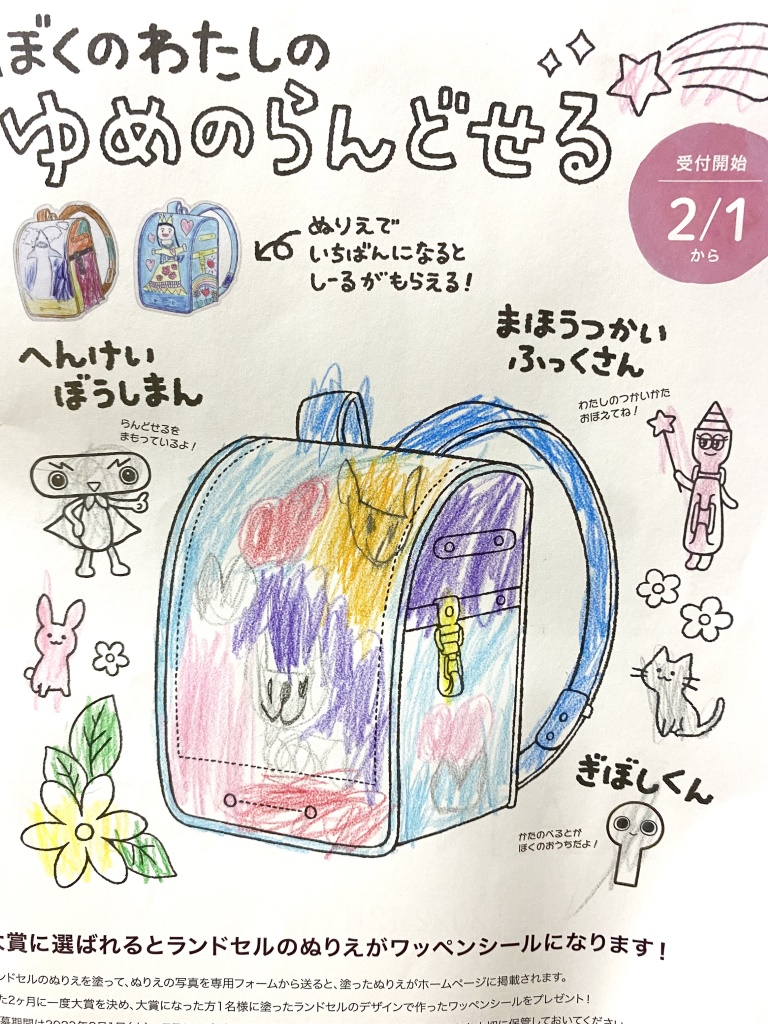 ぼくのわたしの
ゆめのらんどせる
受付開始
2/1
から
ぬりえで
いちばんになると
しーるがもらえる!
へんけい
ぼうしまん
らんどせるを
まもっているよ!
まほうつかい
ふっくさん
わたしのつかいかた
おぼえてね!
ぎぼしくん
かたのべるとが
ぼくのおうちだよ!
大賞に選ばれるとランドセルのぬりえがワッペンシールになります!
ンドセルのぬりえを塗って、ぬりえの写真を専用フォームから送ると、塗ったぬりえがホームページに掲載されます。
た2ヶ月に一度大賞を決め、大賞になった方1名様に塗ったランドセルのデザインで作ったワッペンシールをプレゼント!